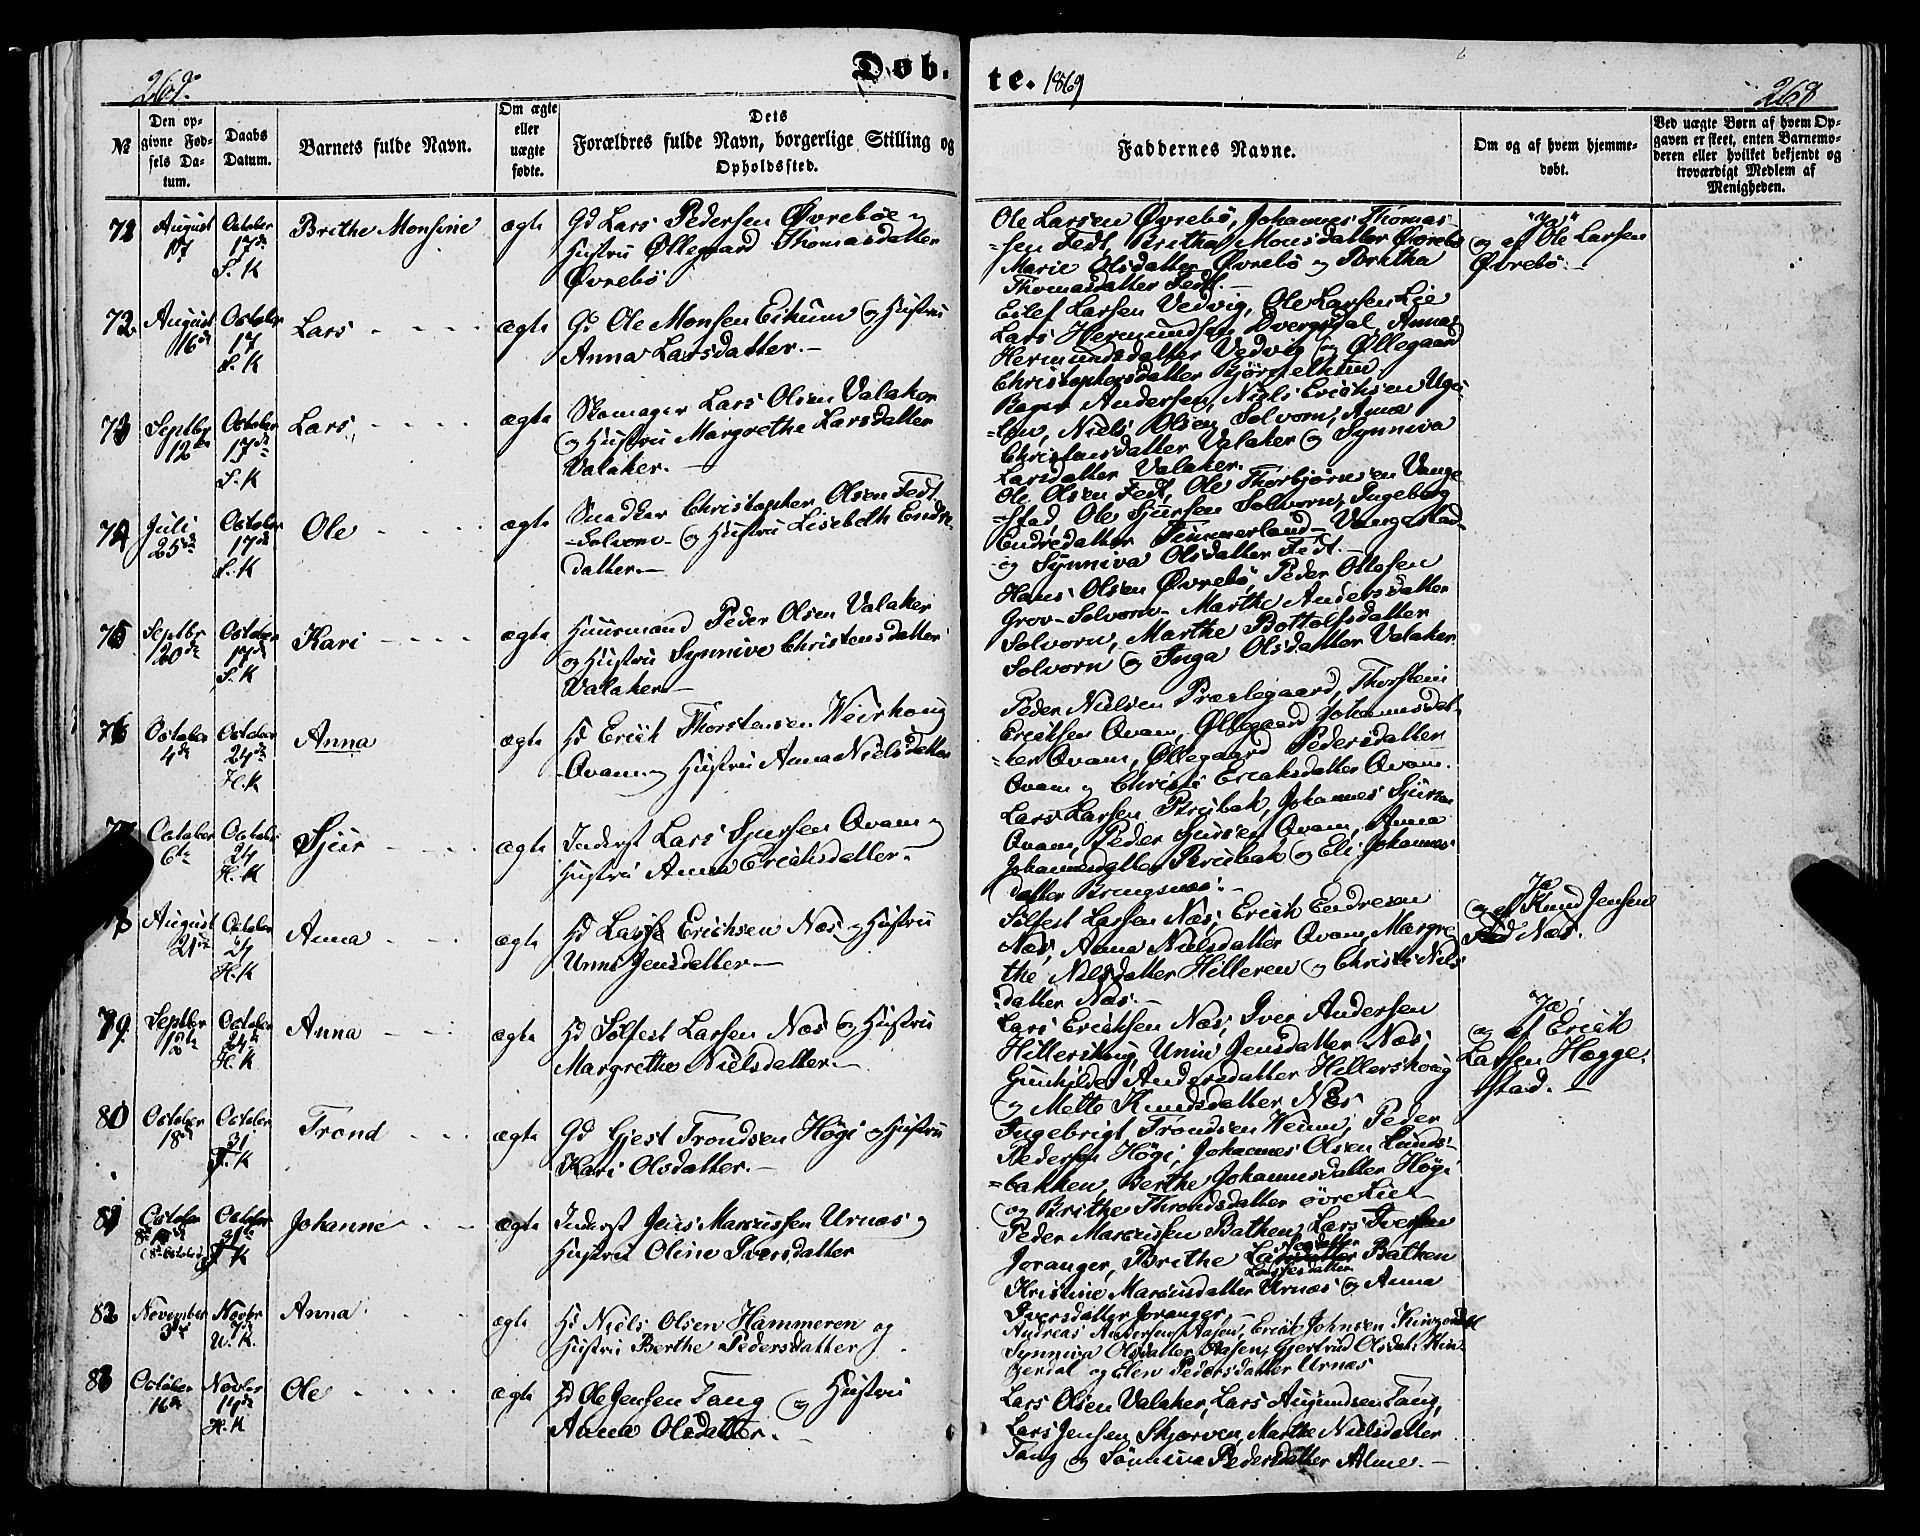 267.
Døb.
te. 1869
268
№
Den opgivne Fødsels Datum.
Daabs Datum.
Barnets fulde Navn.
Om ægte eller uægte fødte.
Dets Forældres fulde Navn, borgerlige Stilling og Opholdssted.
Faddernes Navne.
Om og af hvem hjemmedøbt.
Ved uægte Børn af hvem Opgaven er skeet, enten Barnemoderen eller hvilket bekjendt og troværdigt Medlem af Menigheden.
71
August
17
October
17de
S. K
Brithe Monsine
ægte
Gd Lars Pedersen Øvrebøe og
Hustru Øllegaard Thomasdatter
Øvrebö
Ole Larsen Øvrebö, Johannes Thomas
=sen Fedt, Britha Monsdatter Øvrebö
Marie Olsdatter Øvrebö og Britha
Thomasdatter Fedt.
"Ja"
og af Ole Larsen
Øvrebö.
72.
August
16de
October
17
S. K
Lars
ægte
Gd Ole Monsen Eikum og Hustru
Anna Larsdatter.
Eilef Larsen Vedvig, Ole Larsen Lie
Lars Hermundsen Dvergsdal, Anna
Hermundsdatter Vedvig og Øllegaard
Christophersdatter Bjørnetun
73
Septbr
12te
October
17de
S. K
Lars
ægte
Skomager Lars Olsen Valaker
og Hustru Margrethe Larsdatter
Valaker.
Roger Andersen, Niels Erichsen Ugu
=len, Niels Olsen Solvorn, Anna
Christensdatter Valaker og Synniva
Larsdatter Valaker.
74
Juli
25de
October
17de
S. K
Ole
ægte
Snedker Christopher Olsen Fedt
-Solvorn- og Hustru Lisebeth Endre
datter.
Ole Olsen Fedt, Ole Thorbjørnsen Vange
=stad, Ole Sjursen Solvorn, Ingeborg
Endredatter Timmerland-Vangestad-
og Synniva Olsdatter Fedt.
75
Septbr
20de
October
17de
S. K
Kari
ægte
Huusmand Peder Olsen Valaker
og Hustru Synnive Christensdatter
Valaker.
Hans Olsen Øvrebö, Peder Ottesen
Grov-Solvorn- Marthe Andersdatter
Solvorn, Marthe Bottolfsdatter
Solvorn og Inga Olsdatter Valaker
76
October
4de
October
24de
H. K
Anna
ægte
Hd Erich Thorstensen Weirhoug
-Qvam og Hustru Anna Nielsdatter
Peder Nielsen Præstegaard, Thorstein
Erichsen Qvam, Øllegaard Johannesdat
=ter Qvam, Øllegaard Pedersdatter
Qvam og Christi Erichsdatter Qvam.
77
October
6te
October
24
H. K
Sjur
ægte
Inderst Lars Sjursen Qvam og
Hustru Anna Erichsdatter.
Lars Larsen Breibak, Johannes Sjursen
Qvam, Peder Sjursen Qvam, Anna
Johannesdatter Breibak og Eli Johannes
datter Kringsnæs.
78
August
21de
October
24
H. K
Anna
ægte
Hd Lasse Erichsen Næs og Hustru
Unni Jensdatter
Sølfest Larsen Næs, Erich Endresen
Næs, Anna Nielsdatter Qvam, Margre
the Nielsdatter Hilleren og Christi Niels
datter Næs.
Ja
og af Knud Jensen
Næs.
79.
Septbr
October
24de
H. K
Anna
ægte
Hd Sølfest Larsen Næs og Hustru
Margrethe Nielsdatter.
Lars Erichsen Næs, Iver Andersen
Hillershoug, Unni Jensdatter Næs,
Gunhilde Andersdatter Hillershoug
og Mette Knudsdatter Næs
Ja
og af Erich
Larsen Hægge
stad.
80
October
18de
October
31
J. K
Trond
ægte
Gd Gjest Trondsen Högi og Hustru
Kari Olsdatter.
Ingebrigt Trondsen Venum, Peder
Pedersen Högi, Johannes Olsen Lunds
=bakken, Berthe Johannesdatter Högi
og Brithe Throndsdatter øvre Lie
81
October
8de
(8de October)
October
31te
J. K
Johanne
ægte
Inderst Jens Marcussen Urnæs og
Hustru Oline Iversdatter
Peder Marcussen Bathen, Lars Iversen
Joranger, Brithe Larsdatter Bathen
Kristine Marcusdatter Urnæs og Anna
Iversdatter Joranger,
82
November
3de
Novbr
7de
U. K.
Anna
ægte
Hd Niels Olsen Hammeren og
Hustru Berthe Pedersdatter
Andreas Andersen Aasen, Erich Johnsen Kinzerdal
Synniva Olsdatter Aasen, Gjertrud Olsdatr Kin
zerdal og Elen Pedersdatter Urnæs
83
October
16de
Novbr
14de
H. K
Ole
ægte
Hd Ole Jensen Tang og Hustru
Anna Olsdatter.
Lars Olsen Valaker, Lars Amundsen Tang,
Lars Jensen Skjørven, Marthe Nielsdatter
Tang og Sønneva Pedersdatter Alme.